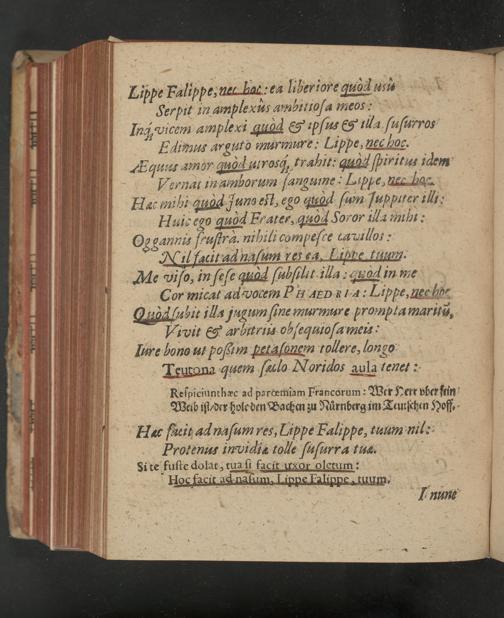 Lippe Falippe, nec hoc: ea liberiore quòd usû
Serpit in amplexûs ambitiosa meos:
Inq́; vicem amplexi quòd & ipsus & illa susurros
Edimus arguto murmure: Lippe, nec hoc.
Æquus amor quòd utrosq́; trahit: quòd spiritus idem
Vernat in amborum sanguine: Lippe, nec hoc.
Hæc mihi quòd Juno est, ego quòd sum Juppiter illi:
Huic ego quòd Frater, quòd Soror illa mihi:
Oggannis frustrà. nihili compesce cavillos:
Nil facit ad nasum res ea, Lippe tuum.
Me viso, in sese quòd subsilit illa: quòd in me
Cor micat ad vocem PHAEDRIA: Lippe, nec hoc
Quòd subit illa jugum sine murmure prompta maritû,
Vivit & arbitriis obsequiosa meis:
Iure bono ut possim petasonem tollere, longo
Teutona quem sæclo Noridos aula tenet:
Respiciunt hæc ad parœmiam Francorum: Wer Herr vber sein
Weib ist/ der hole den Bachen zu Nürnberg im Teutschen Hoff.
Hæc facit ad nasum res, Lippe Falippe, tuum nil:
Protenus invidiæ tolle susurra tuæ.
Si te fuste dolat, tua si facit uxor oletum:
Hoc facit ad nasum, Lippe Falippe, tuum.
I nunc